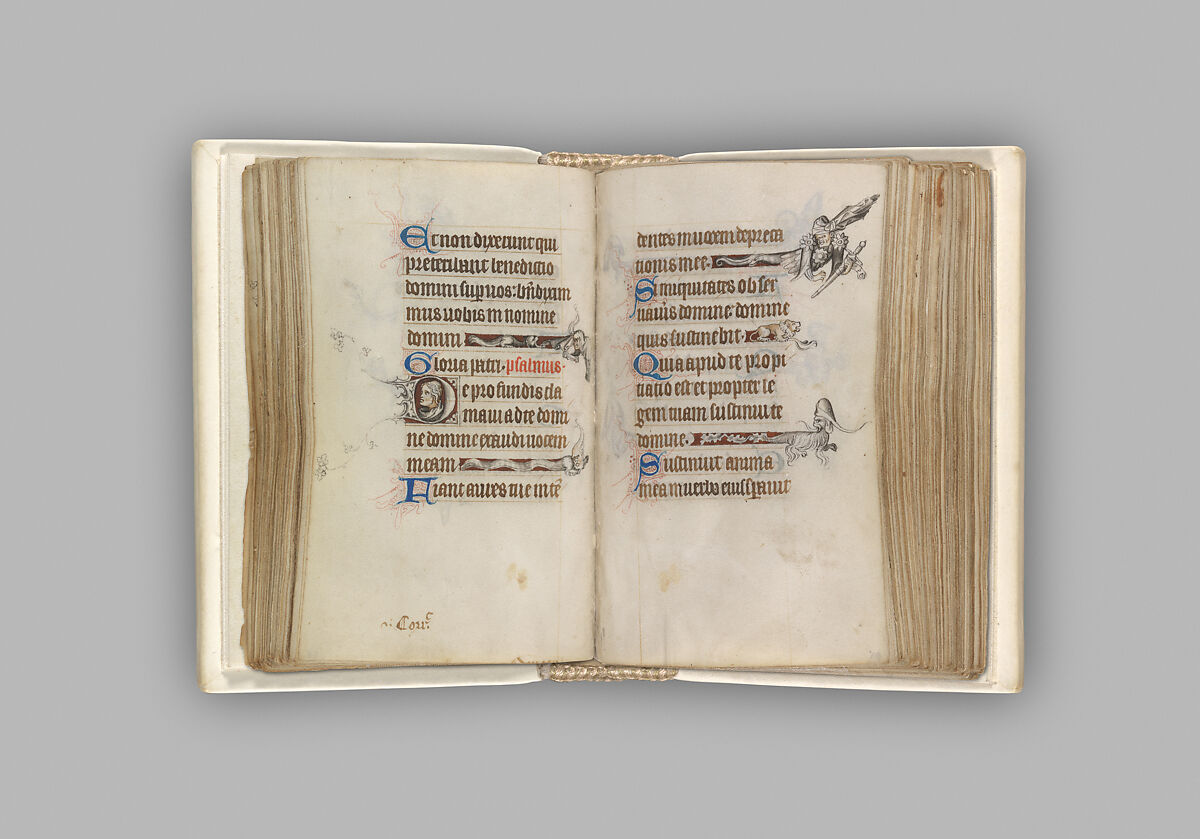 Et non dixerunt qui
preteribant benedictio
domini sup nos: bndixim
mus uobis in nomine
domini
Gloria patri. psalmus.
De profundis cla
maui ad te domi
ne domine exaudi uocem
meam
Fiant aures tue inte
Corrc
dentes in uocem depreca
tionis mee.
Si iniquitates obser
uaueris domine: domine
quis sustinebit.
Quia apud te propi
tiatio est et propter le
gem tuam sustinui te
domine.
Sustinuit anima
mea in uerbo eius sperauit